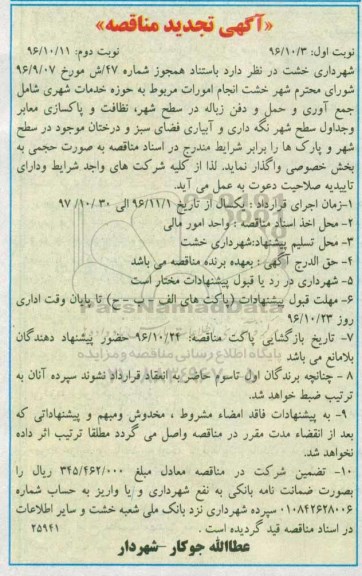 «آگهی تجدید مناقصه»
نوبت اول: ۹۶/۱۰/۳ نوبت دوم: ۹۶/۱۰/۱۱
شهرداری خشت در نظر دارد باستناد همجوز شماره ۴۷/ش مورخ ۹۶/۹/۰۷
شورای محترم شهر خشت انجام امورات مربوط به حوزه خدمات شهری شامل
جمع آوری و حمل و دفن زباله در سطح شهر، نظافت و پاکسازی معابر
وجداول سطح شهر نگه داری و آبیاری فضای سبز و درختان موجود در سطح
شهر و پارک ها را برابر شرایط مندرج در اسناد مناقصه به صورت حجمی به
بخش خصوصی واگذار نماید. لذا از کلیه شرکت های واجد شرایط ودارای
تاییدیه صلاحیت دعوت به عمل می آید.
۱-زمان اجرای قرارداد : یکسال از تاریخ ۹۶/۱۱/۱ الی ۳۰ /۱۰/ ۹۷
۲- محل اخذ اسناد مناقصه : واحد امور مالی
۳- محل تسلیم پیشنهاد:شهرداری خشت
۴- حق الدرج آگهی : بعهده برنده مناقصه می باشد
۵- شهرداری در رد یا قبول پیشنهادات مختار است
۶- مهلت قبول پیشنهادات (پاکت های الف - ب - ج) تا پایان وقت اداری
روز ۹۶/۱۰/۲۳
۷- تاریخ بازگشایی پاکت مناقصه: ۹۶/۱۰/۲۴ حضور پیشنهاد دهندگان
بلامانع می باشد
۸ - چنانچه برندگان اول تاسوم حاضر به انعقاد قرارداد نشوند سپرده آنان به
ترتیب ضبط خواهد شد.
۹- به پیشنهادات فاقد امضاء مشروط ، مخدوش ومبهم و پیشنهاداتی که
بعد از انقضاء مدت مقرر در مناقصه واصل می گردد مطلقا ترتیب اثر داده
نخواهد شد.
۱۰- تضمین شرکت در مناقصه معادل مبلغ ۳۴۵/۴۶۲/۰۰۰ ریال را
بصورت ضمانت نامه بانکی به نفع شهرداری و یا واریز به حساب شماره
۰۱۰۸۴۲۶۲۸۰۰۶ سپرده شهرداری نزد بانک ملی شعبه خشت و سایر اطلاعات
در اسناد مناقصه قید گردیده است . ۲۵۹۴۱
عطاالله جوکار -شهردار
ParsNamadData
پایگاه اطلاع رسانی مناقصه و مزایده